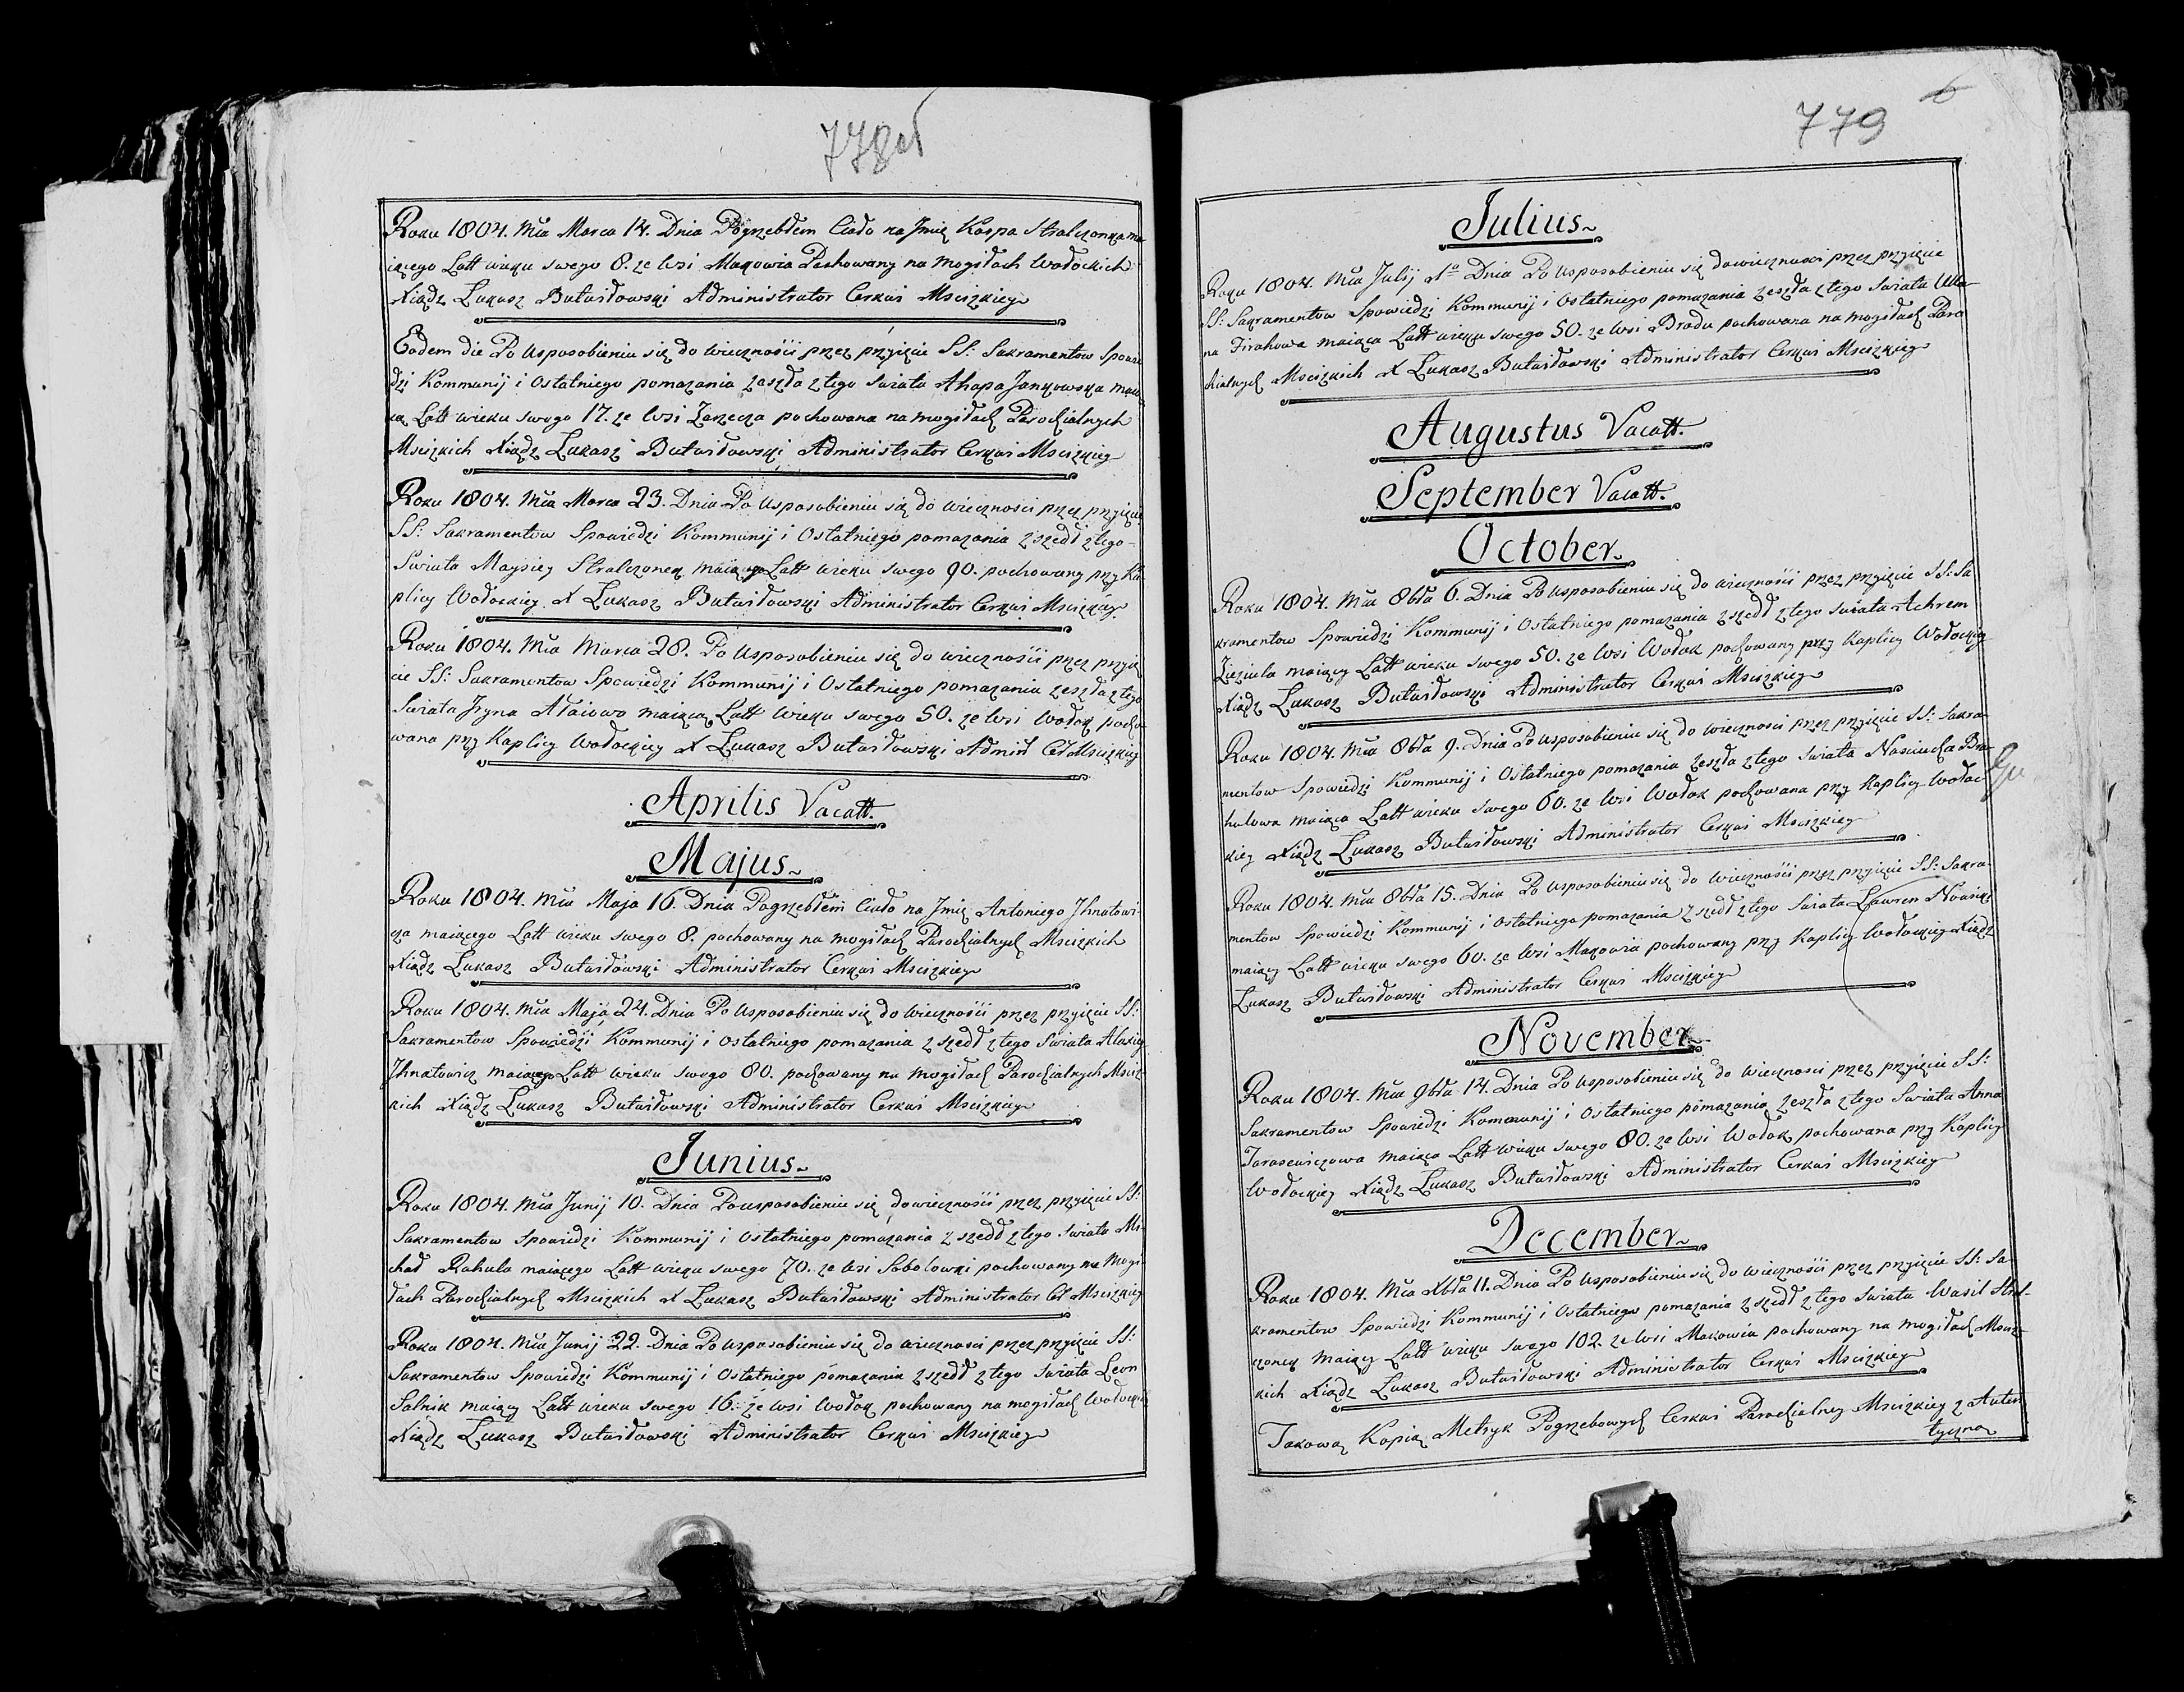 778об
Roku 1804. Mca Marca 14. Dnia Pogrzebłem Ciało na Jmię Karpa Stralczonka ma-
iącego Latt wieku swego 8. ze Wsi Makowia Pochowany na mogiłach Wołockich
Xiądz Łukasz Butwiłowski Administrator Cerkwi Mscizkiey
Eodem die Po Usposobieniu się do wiecznosci przez przyięcie SS: Sakramentow Spowie
dzi Kommunij i Ostatniego pomazania zeszła z tego swiata Ahapa Jankowska maią
ca Latt wieku swego 17. ze Wsi Zarzecza pochowana na mogiłach Parochialnych
Mscizkich Xiądz Łukasz Butwiłowski Administrator Cerkwi Mscizkiey
Roku 1804. Mca Marca 23. Dnia Po Usposobieniu się do wiecznosci przez przyięcie
SS: Sakramentow Spowiedzi Kommunij i Ostatniego pomazania zszedł z tego
Swiata Maysiey Stralczonek Maiącego Latt wieku swego 90. pochowany przy Ka-
plicy Wołockiey X Łukasz Butwiłowski Administrator Cerkwi Mscizkiey
Roku 1804. Mca Marca 28. Po Usposobieniu się do wiecznosci przez przyię
cie SS: Sakramentow Spowiedzi Kommunij i Ostatniego pomazania zeszła z tego
Swiata Jryna maiąca Latt Wieku swego 50. ze Wsi Wołok pocho-
wana przy Kaplicy Wołockiey X Łukasz Butwiłowski Admin Cer Mscizkiey
Aprilis Vacatt.
Majus
Roku 1804. Mca Maja 16. Dnia Pogrzebłem Ciało na Jmię Antoniego Jhnatowi-
cza maiącego Latt wieku swego 8. pochowany na mogiłach Parochialnych Mscizkich
Xiądz Łukasz Butwiłowski Administrator Cerkwi Mscizkiey
Roku 1804. Mca Maja 24. Dnia Po Usposobieniu się do wiecznosci przez przyięcie SS:
Sakramentow Spowiedzi Kommunij i Ostatniego pomazania zszedł z tego Swiata Alaxiey
Jhnatowicz maiącego Latt wieku swego 80. pochowany na mogiłach Parochialnych Msciz-
kich Xiądz Łukasz Butwiłowski Administrator Cerkwi Mscizkiey
Junius
Roku 1804. Mca Junij 10. Dnia Po usposobieniu się do wiecznosci przez przyięcie SS:
Sakramentow Spowiedzi Kommunij i Ostatniego pomazania zszedł z tego Swiata Mi-
chał Rahula maiącego Latt wieku swego 70. ze Wsi Sobolowki pochowany na Mogi
łach Parochialnych Mscizkich X Łukasz Butwiłowski Administrator Cer Mscizkiey
Roku 1804. Mca Junij 22. Dnia Po usposobieniu się do wiecznosci przez przyięcie SS:
Sakramentow Spowiedzi Kommunij i Ostatniego pomazania zszedł z tego Swiata Leon
Salnik maiący Latt wieku swego 16. ze wsi Wołok pochowany na mogiłach Wołockich
Xiądz Łukasz Butwiłowski Administrator Cerkwi Mscizkiey
6
779
Julius
Roku 1804. Mca Julij 1º Dnia Po Usposobieniu się do wiecznosci przez przyięcie
SS: Sakramentow Spowiedzi Kommunij i Ostatniego pomazania zeszła z tego Swiata Ulla-
na Zirahowa maiąca Latt wieku swego 50. ze Wsi Brodu pochowana na mogiłach Paro
chialnych Mscizkich X Łukasz Butwiłowski Administrator Cerkwi Mscizkiey
Augustus Vacatt.
September Vacatt.
October
Roku 1804. Mca 8bra 6. Dnia Po Usposobieniu się do wiecznosci przez przyięcie SS: Sa
kramentow Spowiedzi Kommunij i Ostatniego pomazania zszedł z tego swiata Achrem
Zieziula maiący Latt wieku swego 50. ze Wsi Wołok pochowany przy Kaplicy Wołockiey
Xiądz Łukasz Butwiłowski Administrator Cerkwi Mscizkiey
Roku 1804. Mca 8bra 9. Dnia Po usposobieniu się do wiecznosci przez przyięcie SS: Sakra-
mentow Spowiedzi Kommunij i Ostatniego pomazania zeszła z tego Swiata Nasciucha Bra-
hulowa maiąca Latt wieku swego 60. ze Wsi Wołok pochowana przy Kaplicy Wołoc
kiey Xiądz Łukasz Butwiłowski Administrator Cerkwi Mscizkiey
Roku 1804. Mca 8bra 15. Dnia Po Usposobieniu się do Wiecznosci przez przyięcie SS: Sakra-
mentow Spowiedzi Kommunij i Ostatniego pomazania zszedł z tego Swiata Ławren Nowicki
maiący Latt wieku swego 60. ze Wsi Makowia pochowany przy Kaplicy Wołockiey Xiądz
Łukasz Butwiłowski Administrator Cerkwi Mscizkiey
November
Roku 1804. Mca 9bra 14. Dnia Po Usposobieniu się do wiecznosci przez przyięcie SS:
Sakramentow Spowiedzi Kommunij i Ostatniego pomazania zeszła z tego Swiata Anna
Tarasewiczowa maiąca Latt wieku swego 80. ze Wsi Wołok pochowana przy Kaplicy
Wołockiey Xiądz Łukasz Butwiłowski Administrator Cerkwi Mscizkiey
December
Roku 1804. Mca Xbra 11. Dnia Po Usposobieniu się do wiecznosci przez przyięcie SS: Sa-
kramentow Spowiedzi Kommunij i Ostatniego pomazania zszedł z tego Swiata Wasil Stral-
czonek maiący Latt wieku swego 102. ze Wsi Makowia pochowany na mogiłach Msciz-
kich Xiądz Łukasz Butwiłowski Administrator Cerkwi Mscizkiey
Takową Kopią Metryk Pogrzebowych Cerkwi Parochialney Mscizkiey z Auten
tyczną